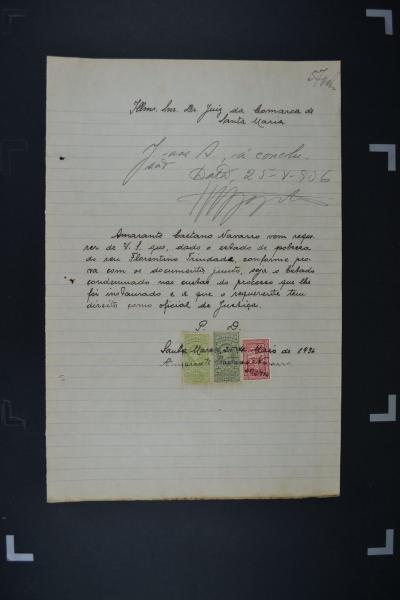 Illmo. Snr. Dr. Juiz da Comarca de
Santa Maria
J. aos A., á conclu-
são
Data, 25-V-936
Amaranto Caetano Navarro vem reque-
rer de V. S. que, dado o estado de pobreza
do réu Florentino Trindade, conforme pro-
va com os documentos juntos, seja o Estado
condemnado nas custas do processo que lhe
foi instaurado e a que o requerente tem
direito como oficial de Justiça.
P. D.
Santa Maria, 25 de Maio de 1936
Amaranto Caetano Navarro